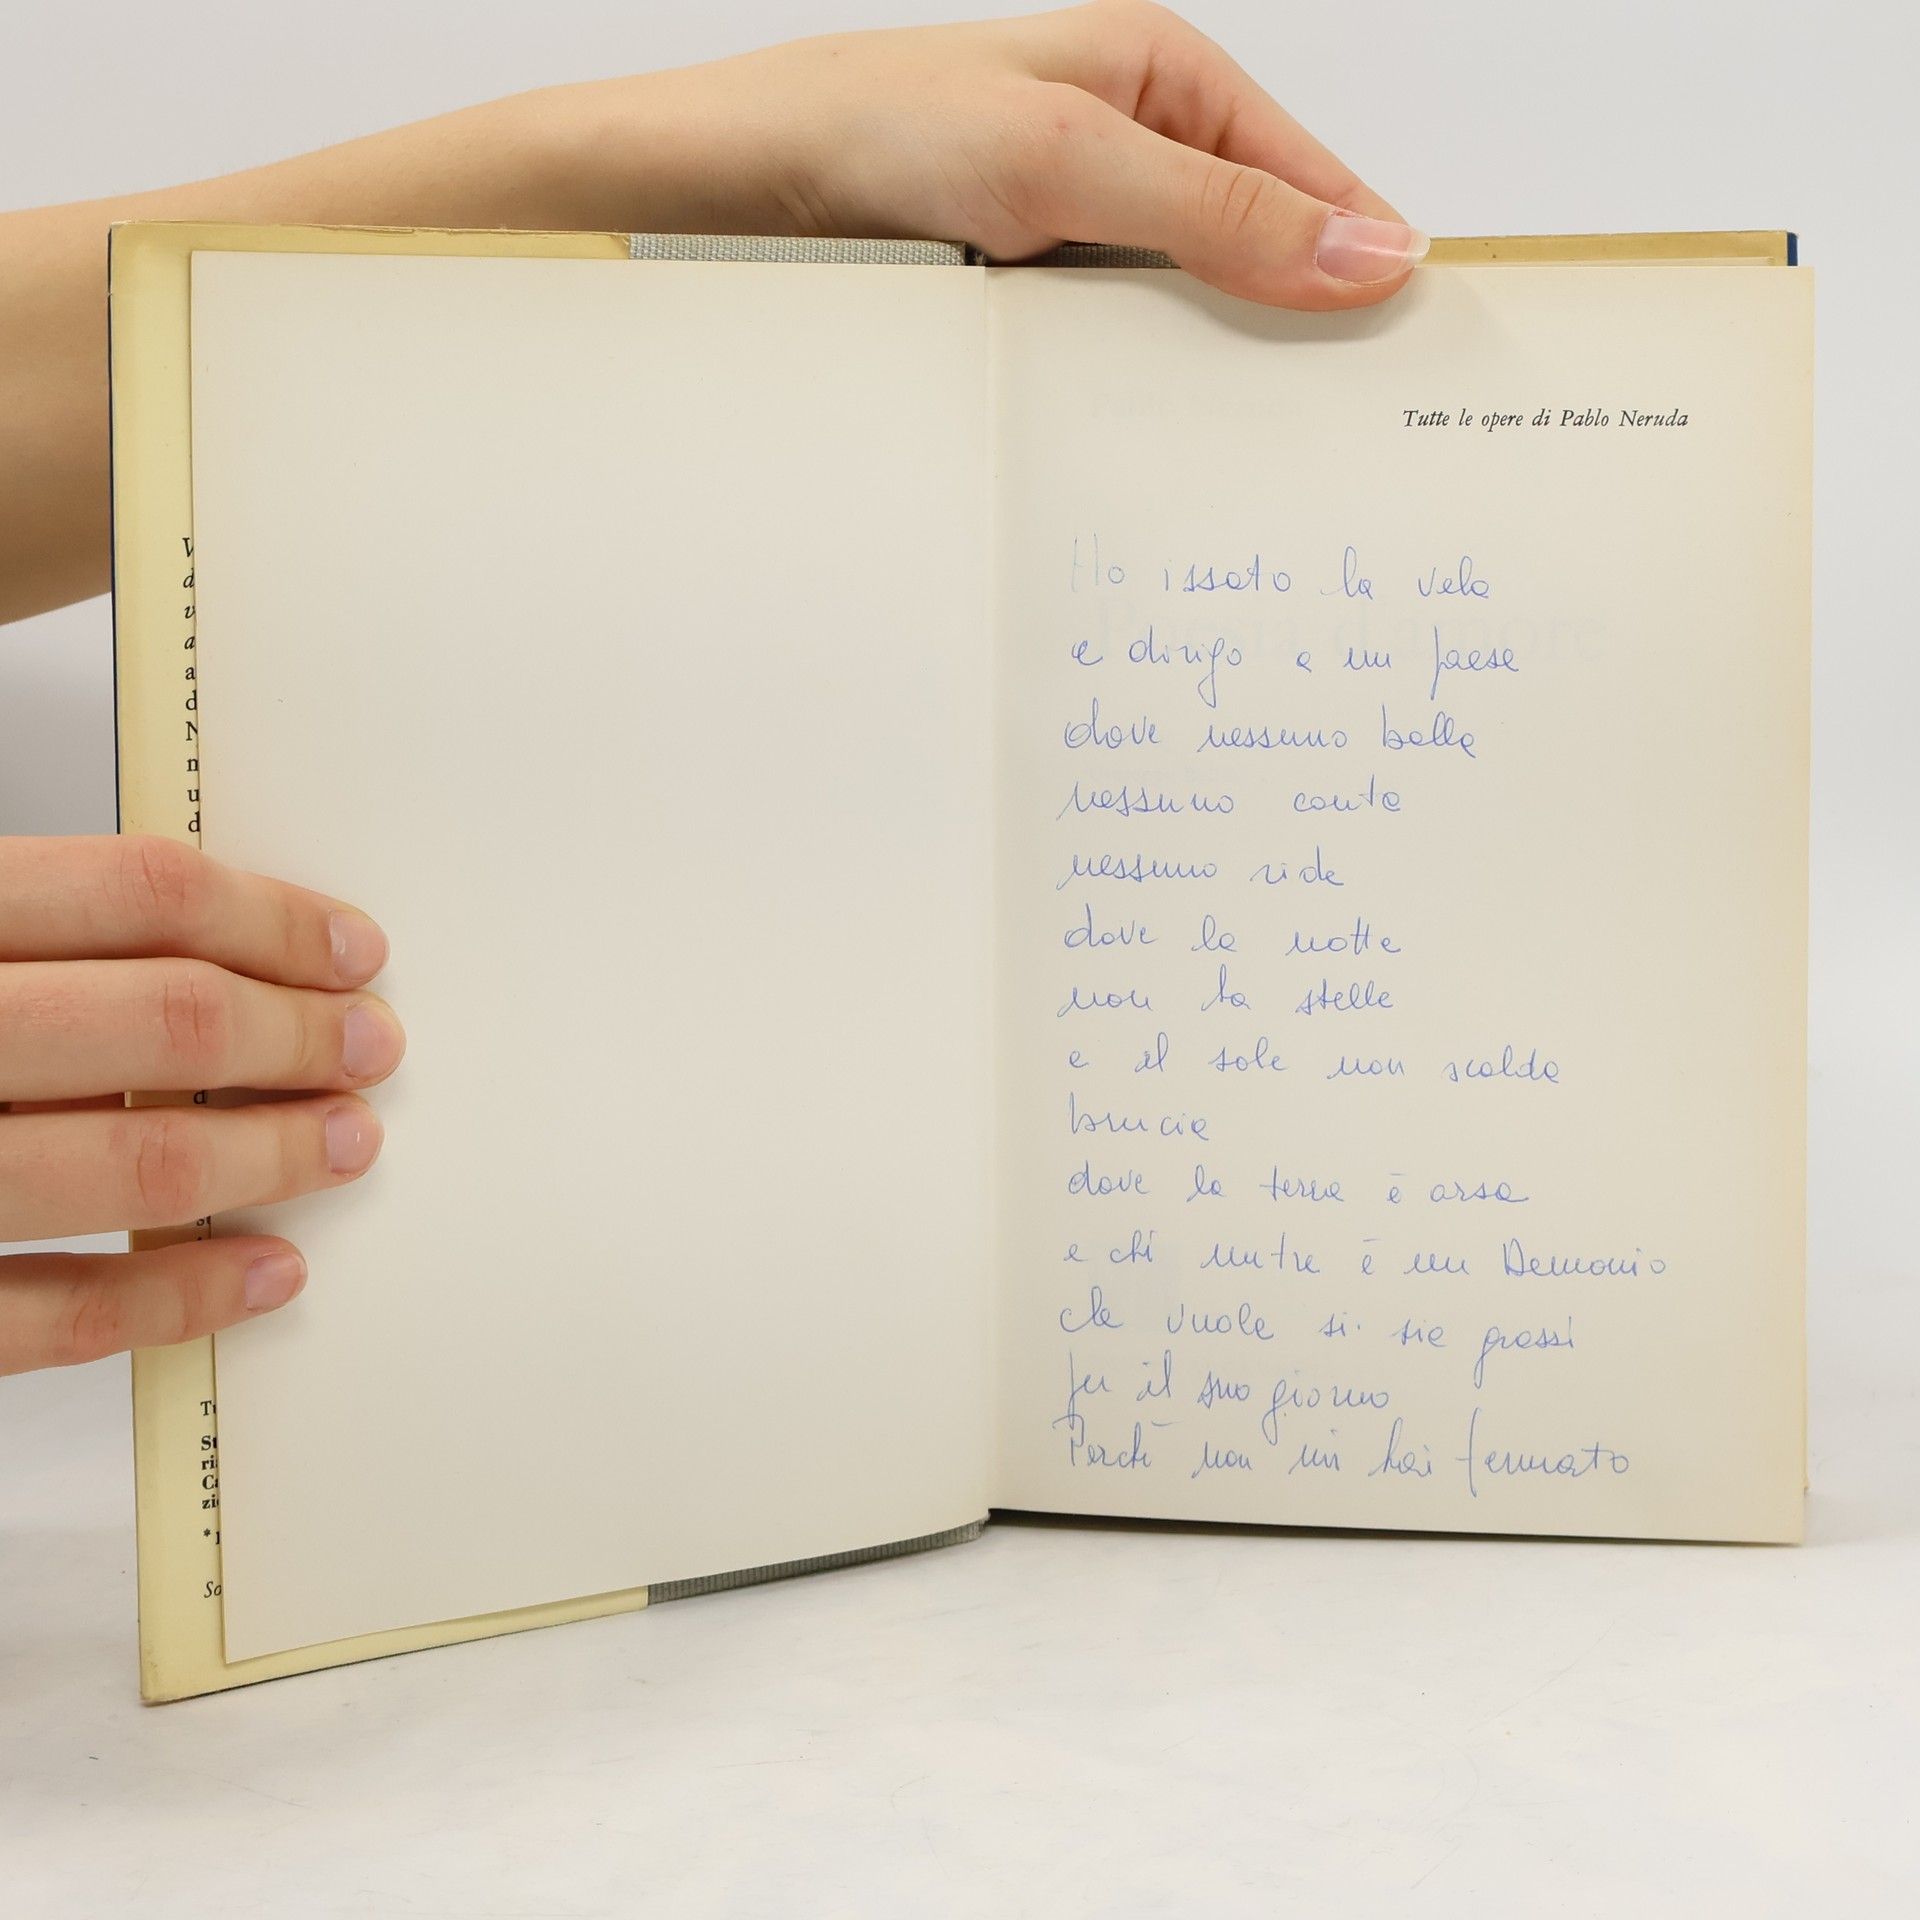 Tutte le opere di Pablo Neruda
Ho issato la vela
e dirigo a un paese
dove nessuno balla
nessuno canta
nessuno ride
dove la notte
non ha stelle
e il sole non scalda
brucia
dove la terra è arsa
e chi nutre è un Demonio
che vuole si sia grassi
per il suo giorno
Perchè non mi hai fermato
V
d
v
a
a
d
N
m
u
d
d
Tu
St
ri
Ca
zi
*
So